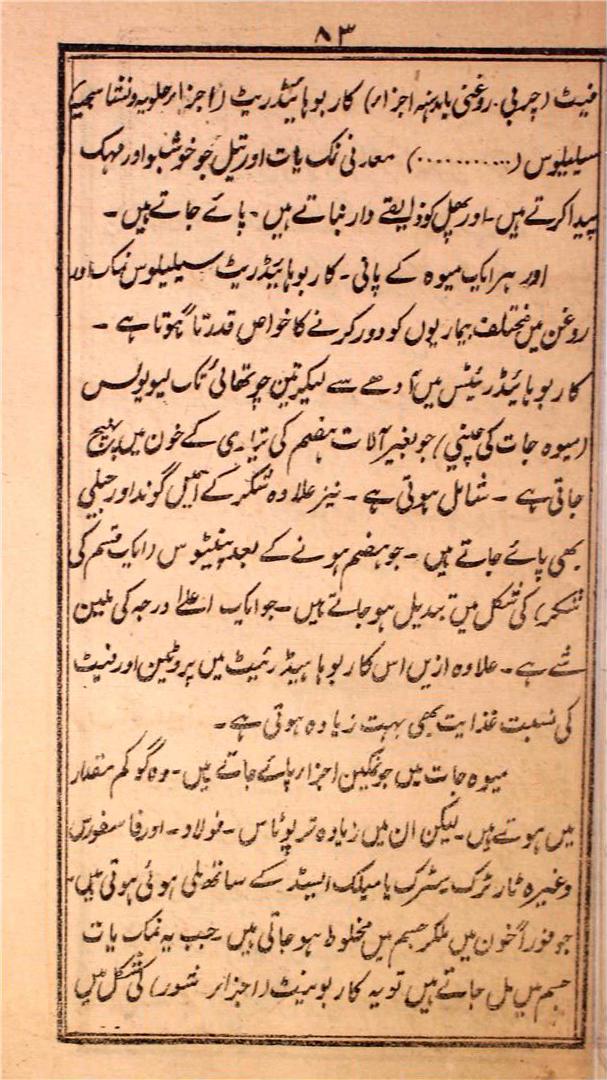 ۸۳
فیٹ (چربی۔ روغنی یا دہنیہ اجزاء) کاربوہائیڈریٹ (اجزاء حلویہ و نشاستہ
سیلیلوس (..........) معدنی نمک یات اور تیل جو خوشبو اور مہک
پیدا کرتے ہیں۔ اور پھل کو ذائقے دار بناتے ہیں۔ پائے جاتے ہیں۔
اور ہر ایک میوہ کے پانی۔ کاربوہائیڈریٹ سیلیلوس نمک اور
روغن میں مختلف بیماریوں کو دور کرنے کا خواص قدرتاً ہوتا ہے۔
کاربوہائیڈرئیٹس میں آدھے سے لیکر تین چوتھائی تک لیویولس
(میوہ جات کی چینی) جو بغیر آلات ہضم کی تیاری کے خون میں پہنچ
جاتی ہے۔ شامل ہوتی ہے۔ نیز علاوہ شکر کے اسمیں گوند اور جیلی
بھی پائے جاتے ہیں۔ جو ہضم ہونے کے بعد پینٹوس (ایک قسم کی
شکر) کی شکل میں تبدیل ہو جاتے ہیں۔ جو ایک اعلےٰ درجہ کی ملین
شے ہے۔ علاوہ ازیں اس کاربوہائیڈرئیٹ میں پروٹین اور فیٹ
کی نسبت غذایت بھی بہت زیادہ ہوتی ہے۔
میوہ جات میں جو نمکین اجزاء پائے جاتے ہیں۔ وہ گو کم مقدار
میں ہوتے ہیں۔ لیکن ان میں زیادہ تر پوٹاس۔ فولاد۔ اور فاسفورس
وغیرہ ٹارٹرک سٹرک یا میلک ایسڈ کے ساتھ ملی ہوئی ہوتی ہیں۔
جو فوراً خون میں ملکر جسم میں مخلوط ہو جاتی ہیں۔ جب یہ نمک یات
جسم میں مل جاتے ہیں تو یہ کاربونیٹ (اجزاء شور) کی شکل میں